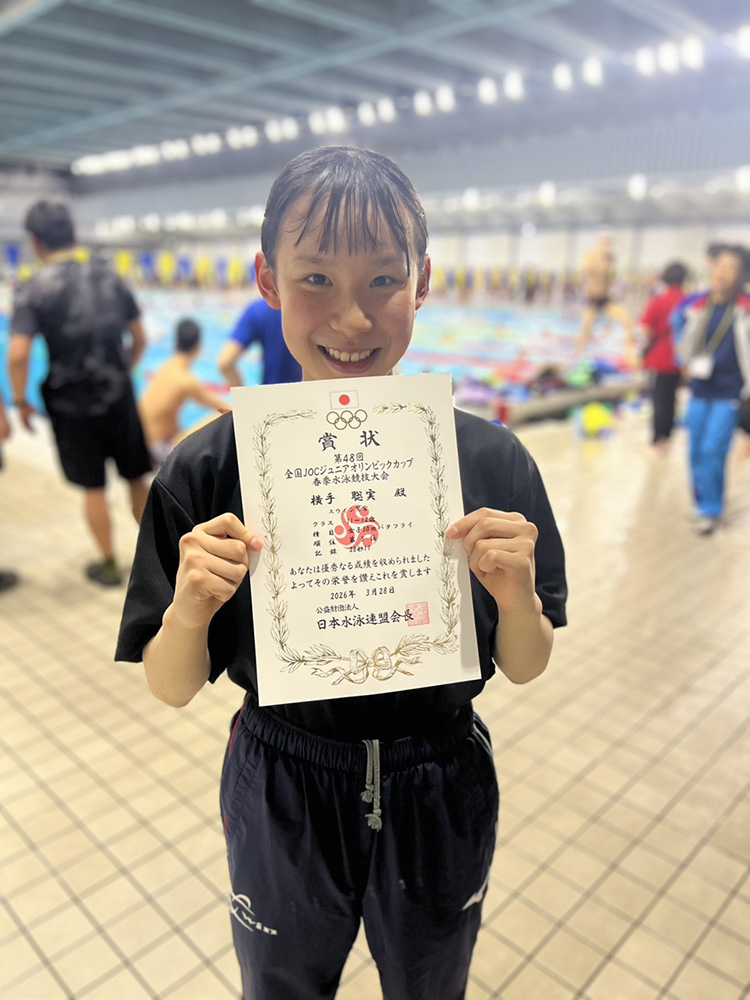 賞状
第48回
全国JOCジュニアオリンピックカップ
春季水泳競技大会
横手 聡実 殿
クラス 11〜12歳
種目 女子50mバタフライ
順位 第
記録 28秒11
あなたは優秀なる成績を収められました
よってその栄誉を讃えこれを賞します
2026年 3月28日
公益財団法人
日本水泳連盟会長
Win